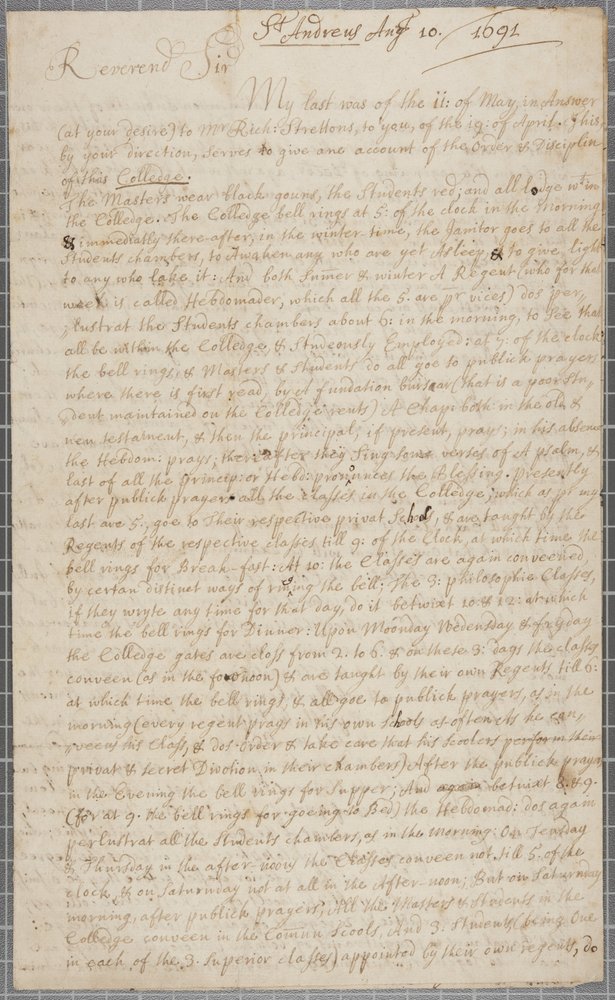 St Andreus Augt 10. / 1691
Reverend Sir
My last was of the 11: of May, in Answer
(at your desire) to Mr Rich: Strettons, to you, of the 19: of April. This
by your direction, serves to give ane account of the Order & Disciplin
of this Colledge.
The Masters wear black gouns, the Students red; and all lodge wt in
the Colledge. The Colledge bell rings at 5: of the clock in the morning
& immediatly there after, in the winter time, the Janitor goes to all the
Students chambers, to Awaken any who are yet Asleep, & to give light
to any who lake it: And both Sumer & winter A Regent (who for that
week is called Hebdomader, which all the 5. are pr vices) dos per,,
,,lustrat the Students chambers about 6: in the morning, to see that
all be within the Colledge, & studeously Employed: at 7: of the clock
the bell rings, & Masters & Students do all goe to publick prayers
where there is first read, by A fundation bursar (that is a poor Stu,,
,,dent maintained on the Colledge rents) A Chap: both in the old &
new testament, & then the principal, if present, prays; in his absence
the Hebdom: prays; thereafter they Sing some verses of A psalm, &
last of all the Princip: or Hebd: pronounces the Blessing. Presently
after publick prayers all the classes in the Colledge, which as pr my
last are 5:, goe to Their respective privat Schols, & are taught by the
Regents of the respective classes till 9: of the Clock, at which time the
bell rings for Break-fast: At 10: the Classes are again conveened,
by certan distinct ways of rining the bell: The 3: philosophie Classes,
if they wryte any time for that day, do it betwixt 10 & 12: at which
time the bell rings for Dinner: Upon Moonday Wedensday & fryday
the Colledge gates are closs from 2. to 6. & on these 3: days the classes
conveen (as in the forenoon) & are taught by their own Regents till 6:
at which time the bell rings, & all goe to publick prayers, as in the
morning (every regent prays in his own schols as often as he con,,
,,veens his Class, & dos order & take care that his Scolers perform their
privat & secret Divotion in their chambers) After the publick prayer
in the Evening the bell rings for Supper; And again betwixt 8. & 9.
(for at 9. the bell rings for going to Bed) the Hebdomad: dos again
perlustrat all the Students chambers, as in the morning: On Teusday
& Thursday in the after-noons the Classes conveen not till 5. of the
clock, & on Saturnday not at all in the After-noon; But on Saturnday
morning, after publick prayers, All the Masters & Students in the
Colledge conveen in the Comun Scools, And 3. Students (being One
in each of the 3. Superior classes) appointed by their own regents, do